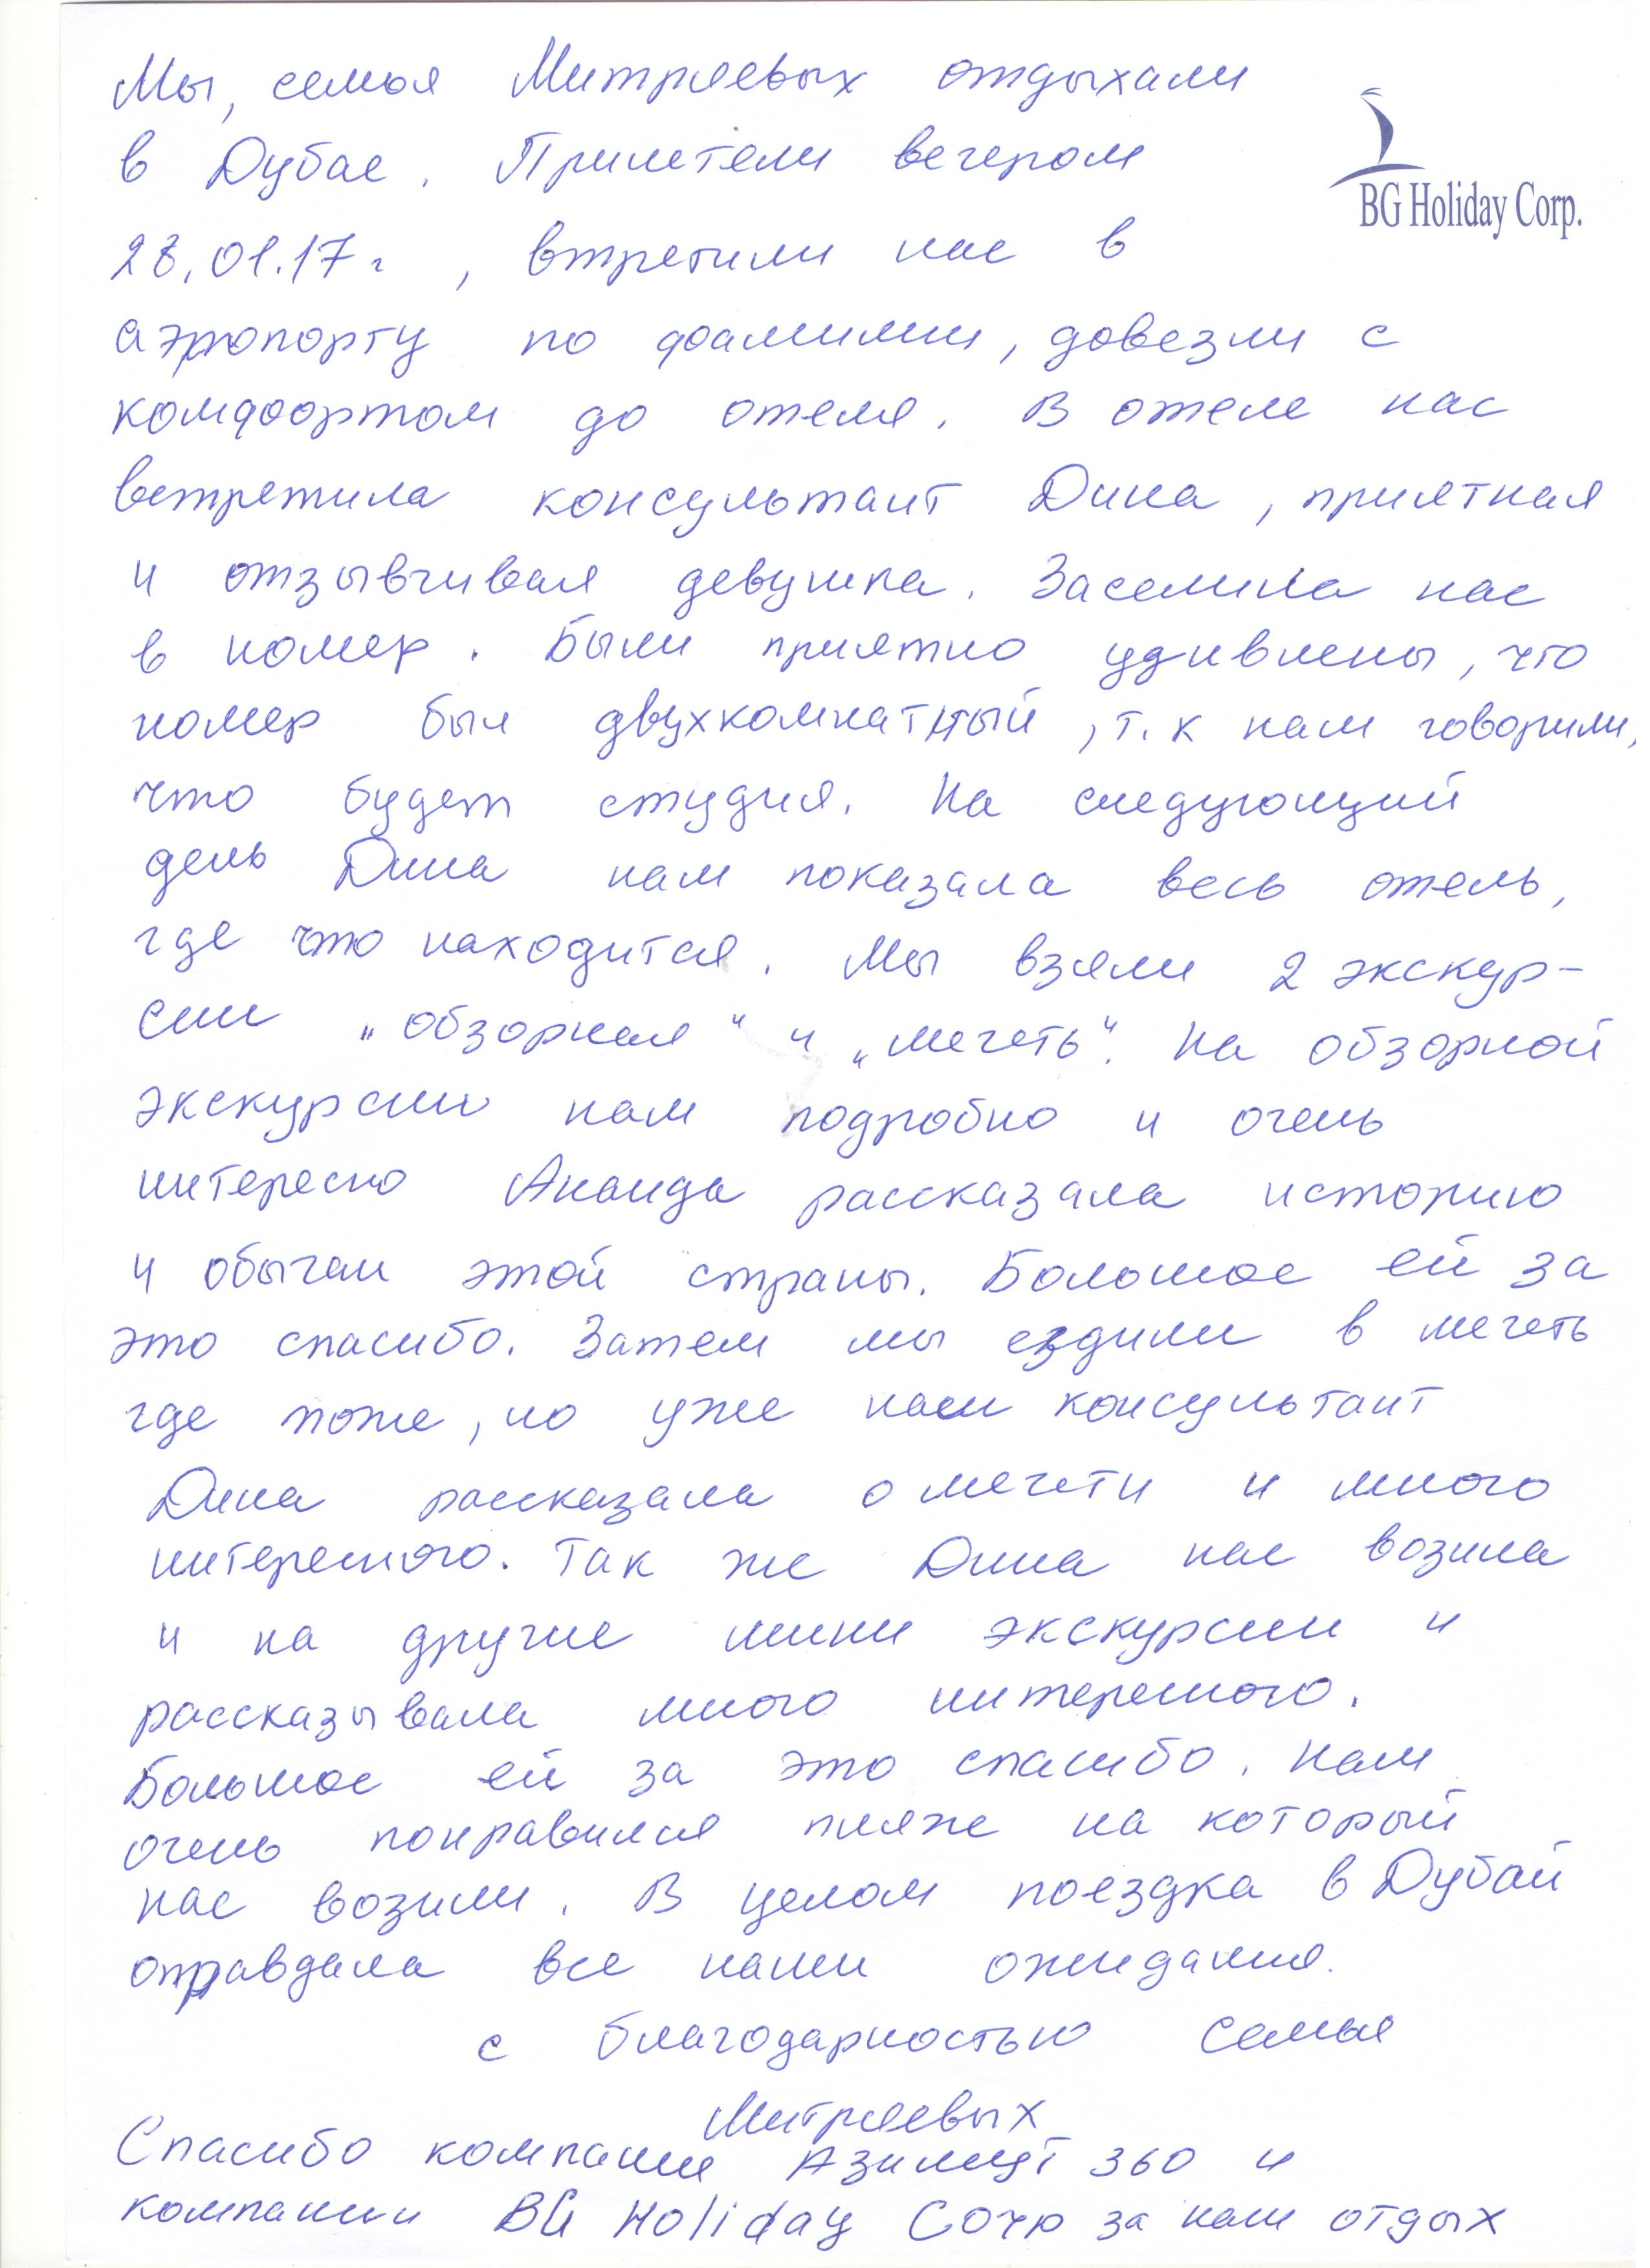 Мы, семья Митряевых отдыхали
BG Holiday Corp.
в Дубае. Прилетели вечером
28.01.17г, втретили нас в
аэропорту по фамилии, довезли с
комфортом до отеля. В отеле нас
встретила консультант Дина, приятная
и отзывчивая девушка. Заселила нас
в номер. Были приятно удивлены, что
номер был двухкомнатный, т.к нам говорили,
что будет студия. На следующий
день Дина нам показала весь отель,
где что находится. Мы взяли 2 экскур-
сии "обзорная" и "мечеть". На обзорной
экскурсии нам подробно и очень
интересно Аноида рассказала историю
и обычаи этой страны. Большое ей за
это спасибо. Затем мы ездили в мечеть
где тоже, но уже наш консультант
Дина рассказала о мечети и много
интересного. Так же Дина нас возила
и на другие мини экскурсии и
рассказывала много интересного.
Большое ей за это спасибо. Нам
очень понравился пляж на который
нас возили. В целом поездка в Дубай
оправдала все наши ожидания.
с благодарностью семья
Митряевых
Спасибо компании Азимут 360 и
компании BG Holiday Corp за наш отдых